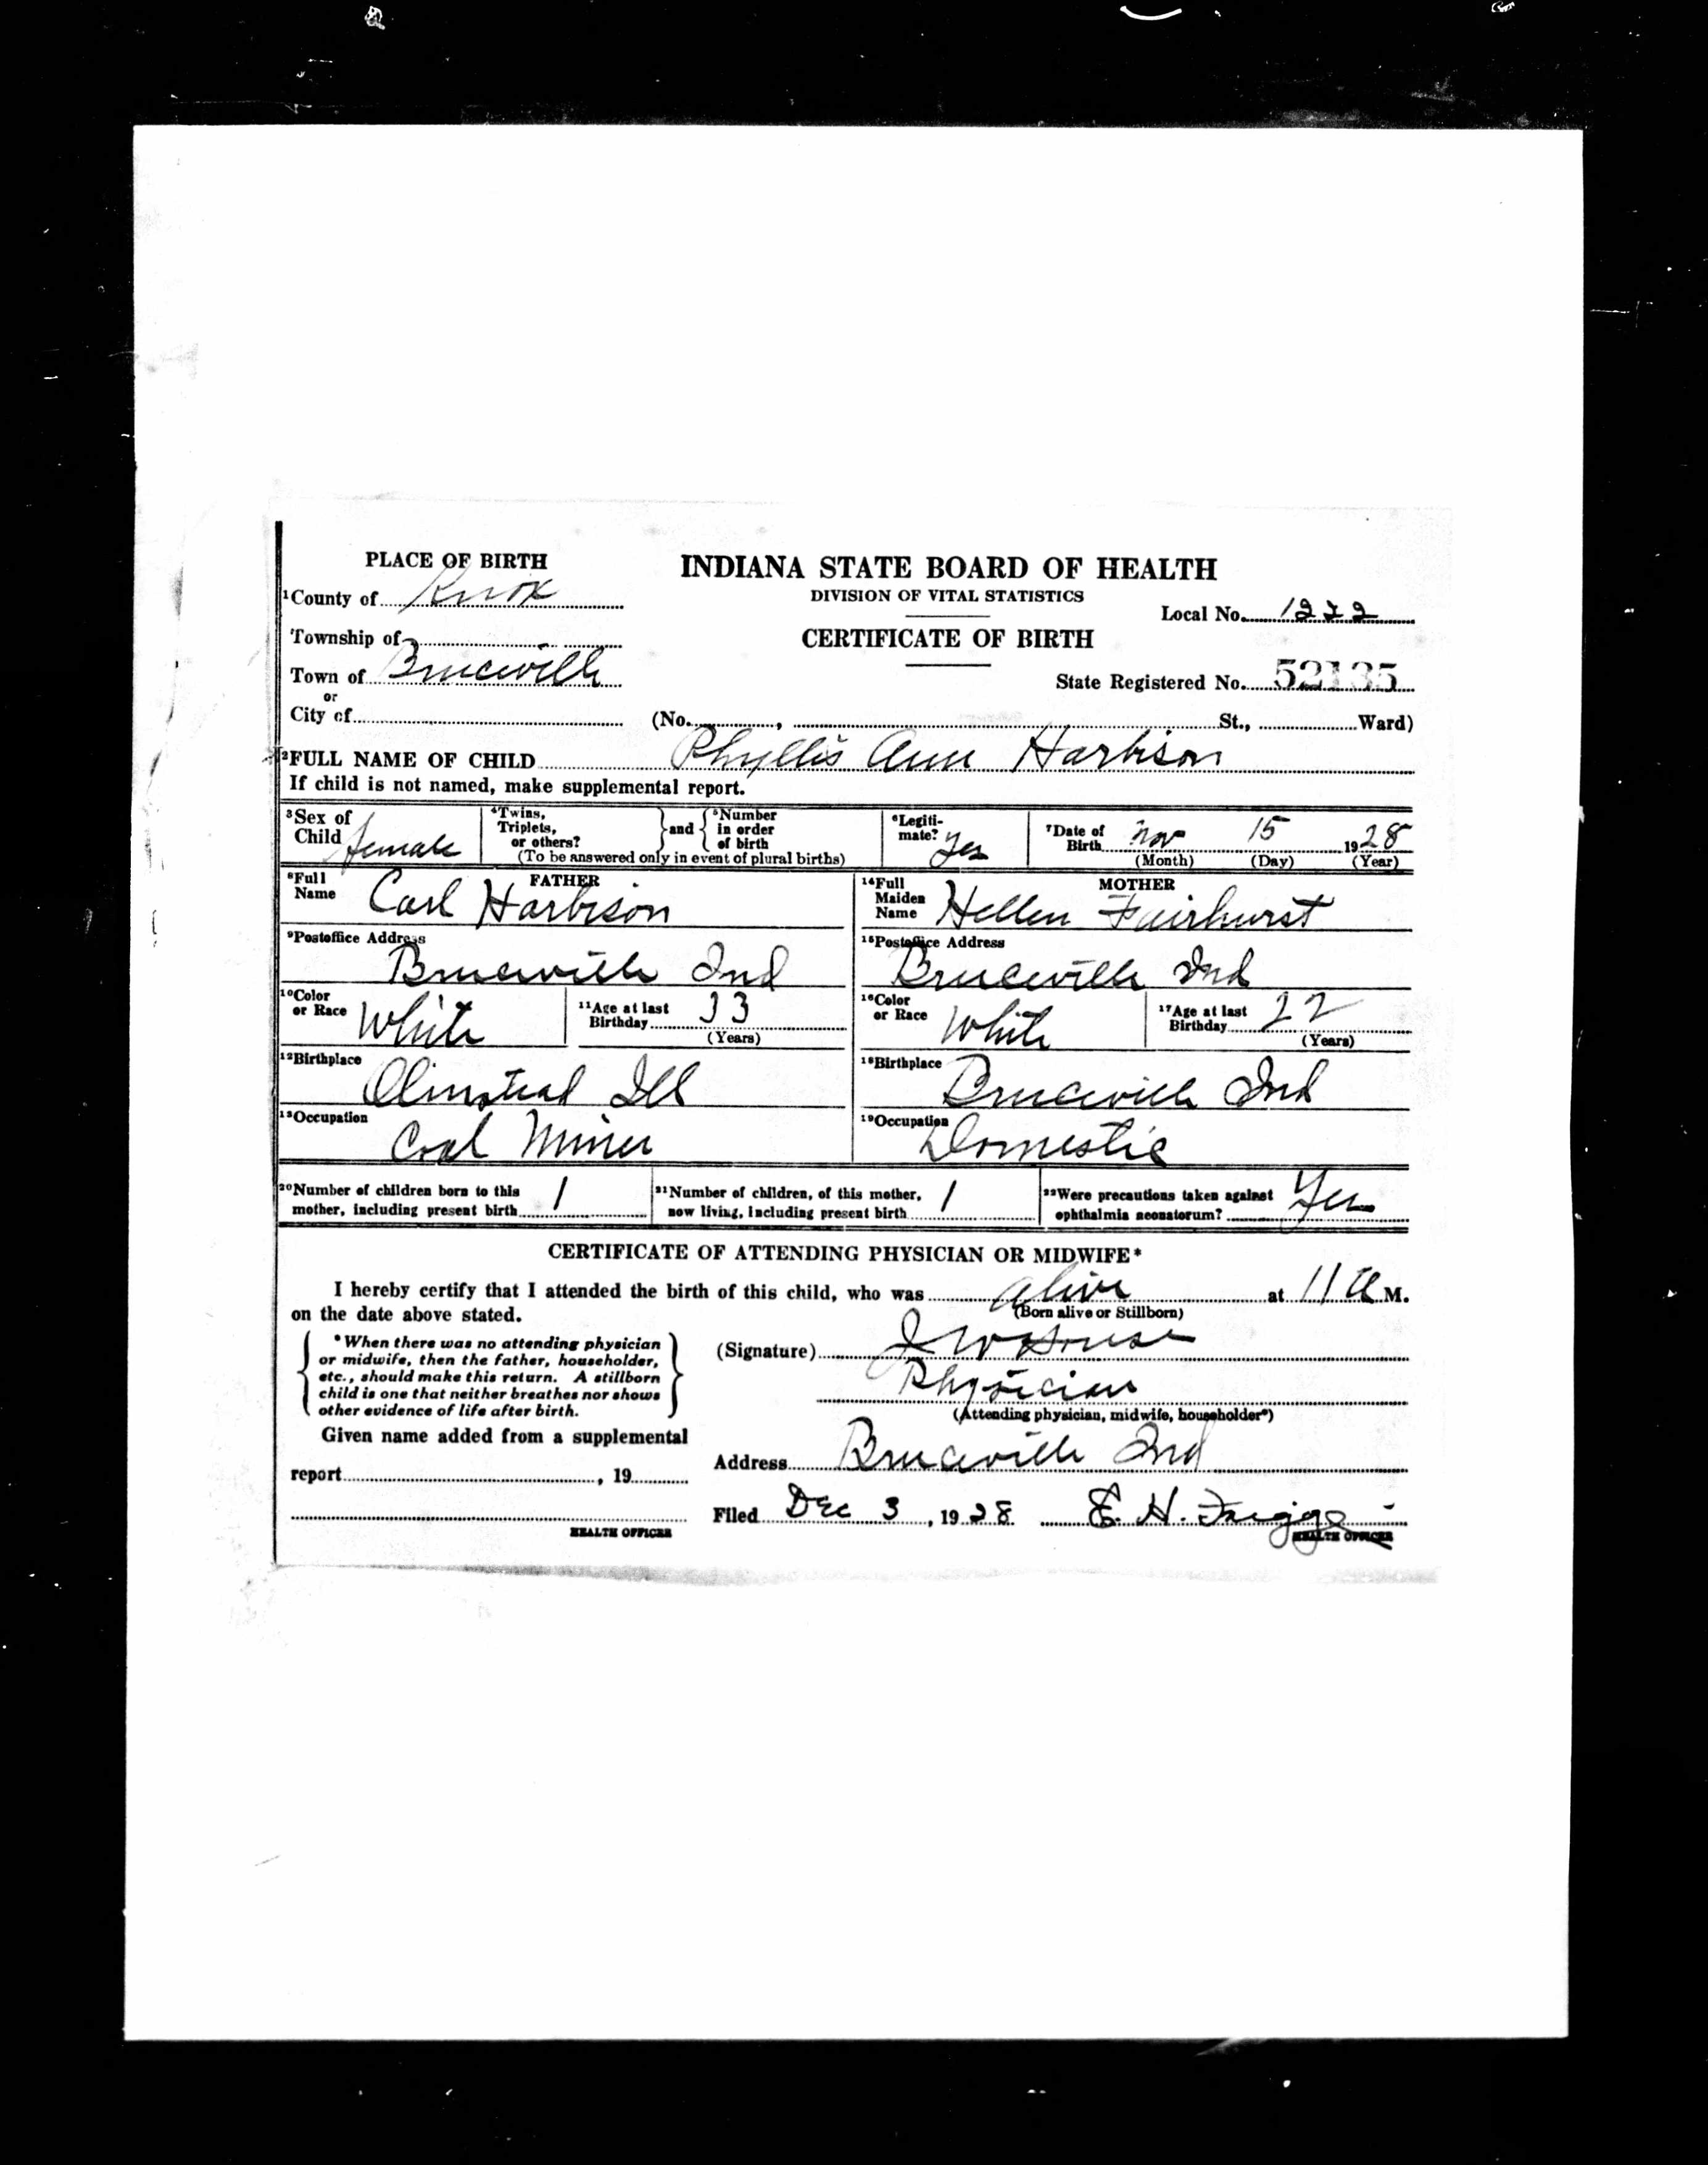 PLACE OF BIRTH
INDIANA STATE BOARD OF HEALTH
DIVISION OF VITAL STATISTICS
1County of Knox
Local No. 1222
Township of
CERTIFICATE OF BIRTH
Town of Bruceville
State Registered No. 52135
or
City of (No. , St., Ward)
2FULL NAME OF CHILD Phyllis Ann Harbison
If child is not named, make supplemental report.
3Sex of Child female
4Twins, Triplets, or others? and 5Number in order of birth
(To be answered only in event of plural births)
6Legiti-mate? Yes
7Date of Birth Nov 15 1928
(Month) (Day) (Year)
FATHER
8Full Name Carl Harbison
MOTHER
14Full Maiden Name Hellen Fairhurst
9Postoffice Address
Bruceville Ind
15Postoffice Address
Bruceville Ind
10Color or Race White
11Age at last Birthday 33
(Years)
16Color or Race White
17Age at last Birthday 22
(Years)
12Birthplace
Olmstead Ill
18Birthplace
Bruceville Ind
13Occupation
Coal Miner
19Occupation
Domestic
20Number of children born to this mother, including present birth 1
21Number of children, of this mother, now living, including present birth 1
22Were precautions taken against ophthalmia neonatorum? Yes
CERTIFICATE OF ATTENDING PHYSICIAN OR MIDWIFE*
I hereby certify that I attended the birth of this child, who was alive at 11 a M.
(Born alive or Stillborn)
on the date above stated.
*When there was no attending physician
or midwife, then the father, householder,
etc., should make this return. A stillborn
child is one that neither breathes nor shows
other evidence of life after birth.
(Signature) House
Physician
(Attending physician, midwife, householder*)
Given name added from a supplemental
report , 19
Address Bruceville Ind
Filed Dec 3, 1928 E. H.
HEALTH OFFICER
HEALTH OFFICER